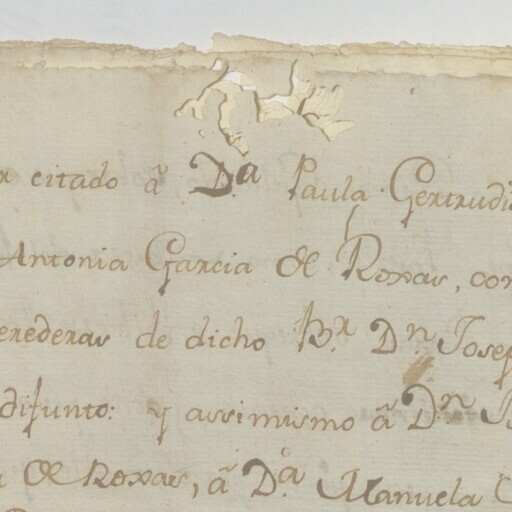 citado â D.ª Paula Gertrudi
Antonia Garcia de Roxas, con
erederas de dicho B.r D.n Josep
difunto: y assimismo â D.n
de Roxas, â D.ª Manuela